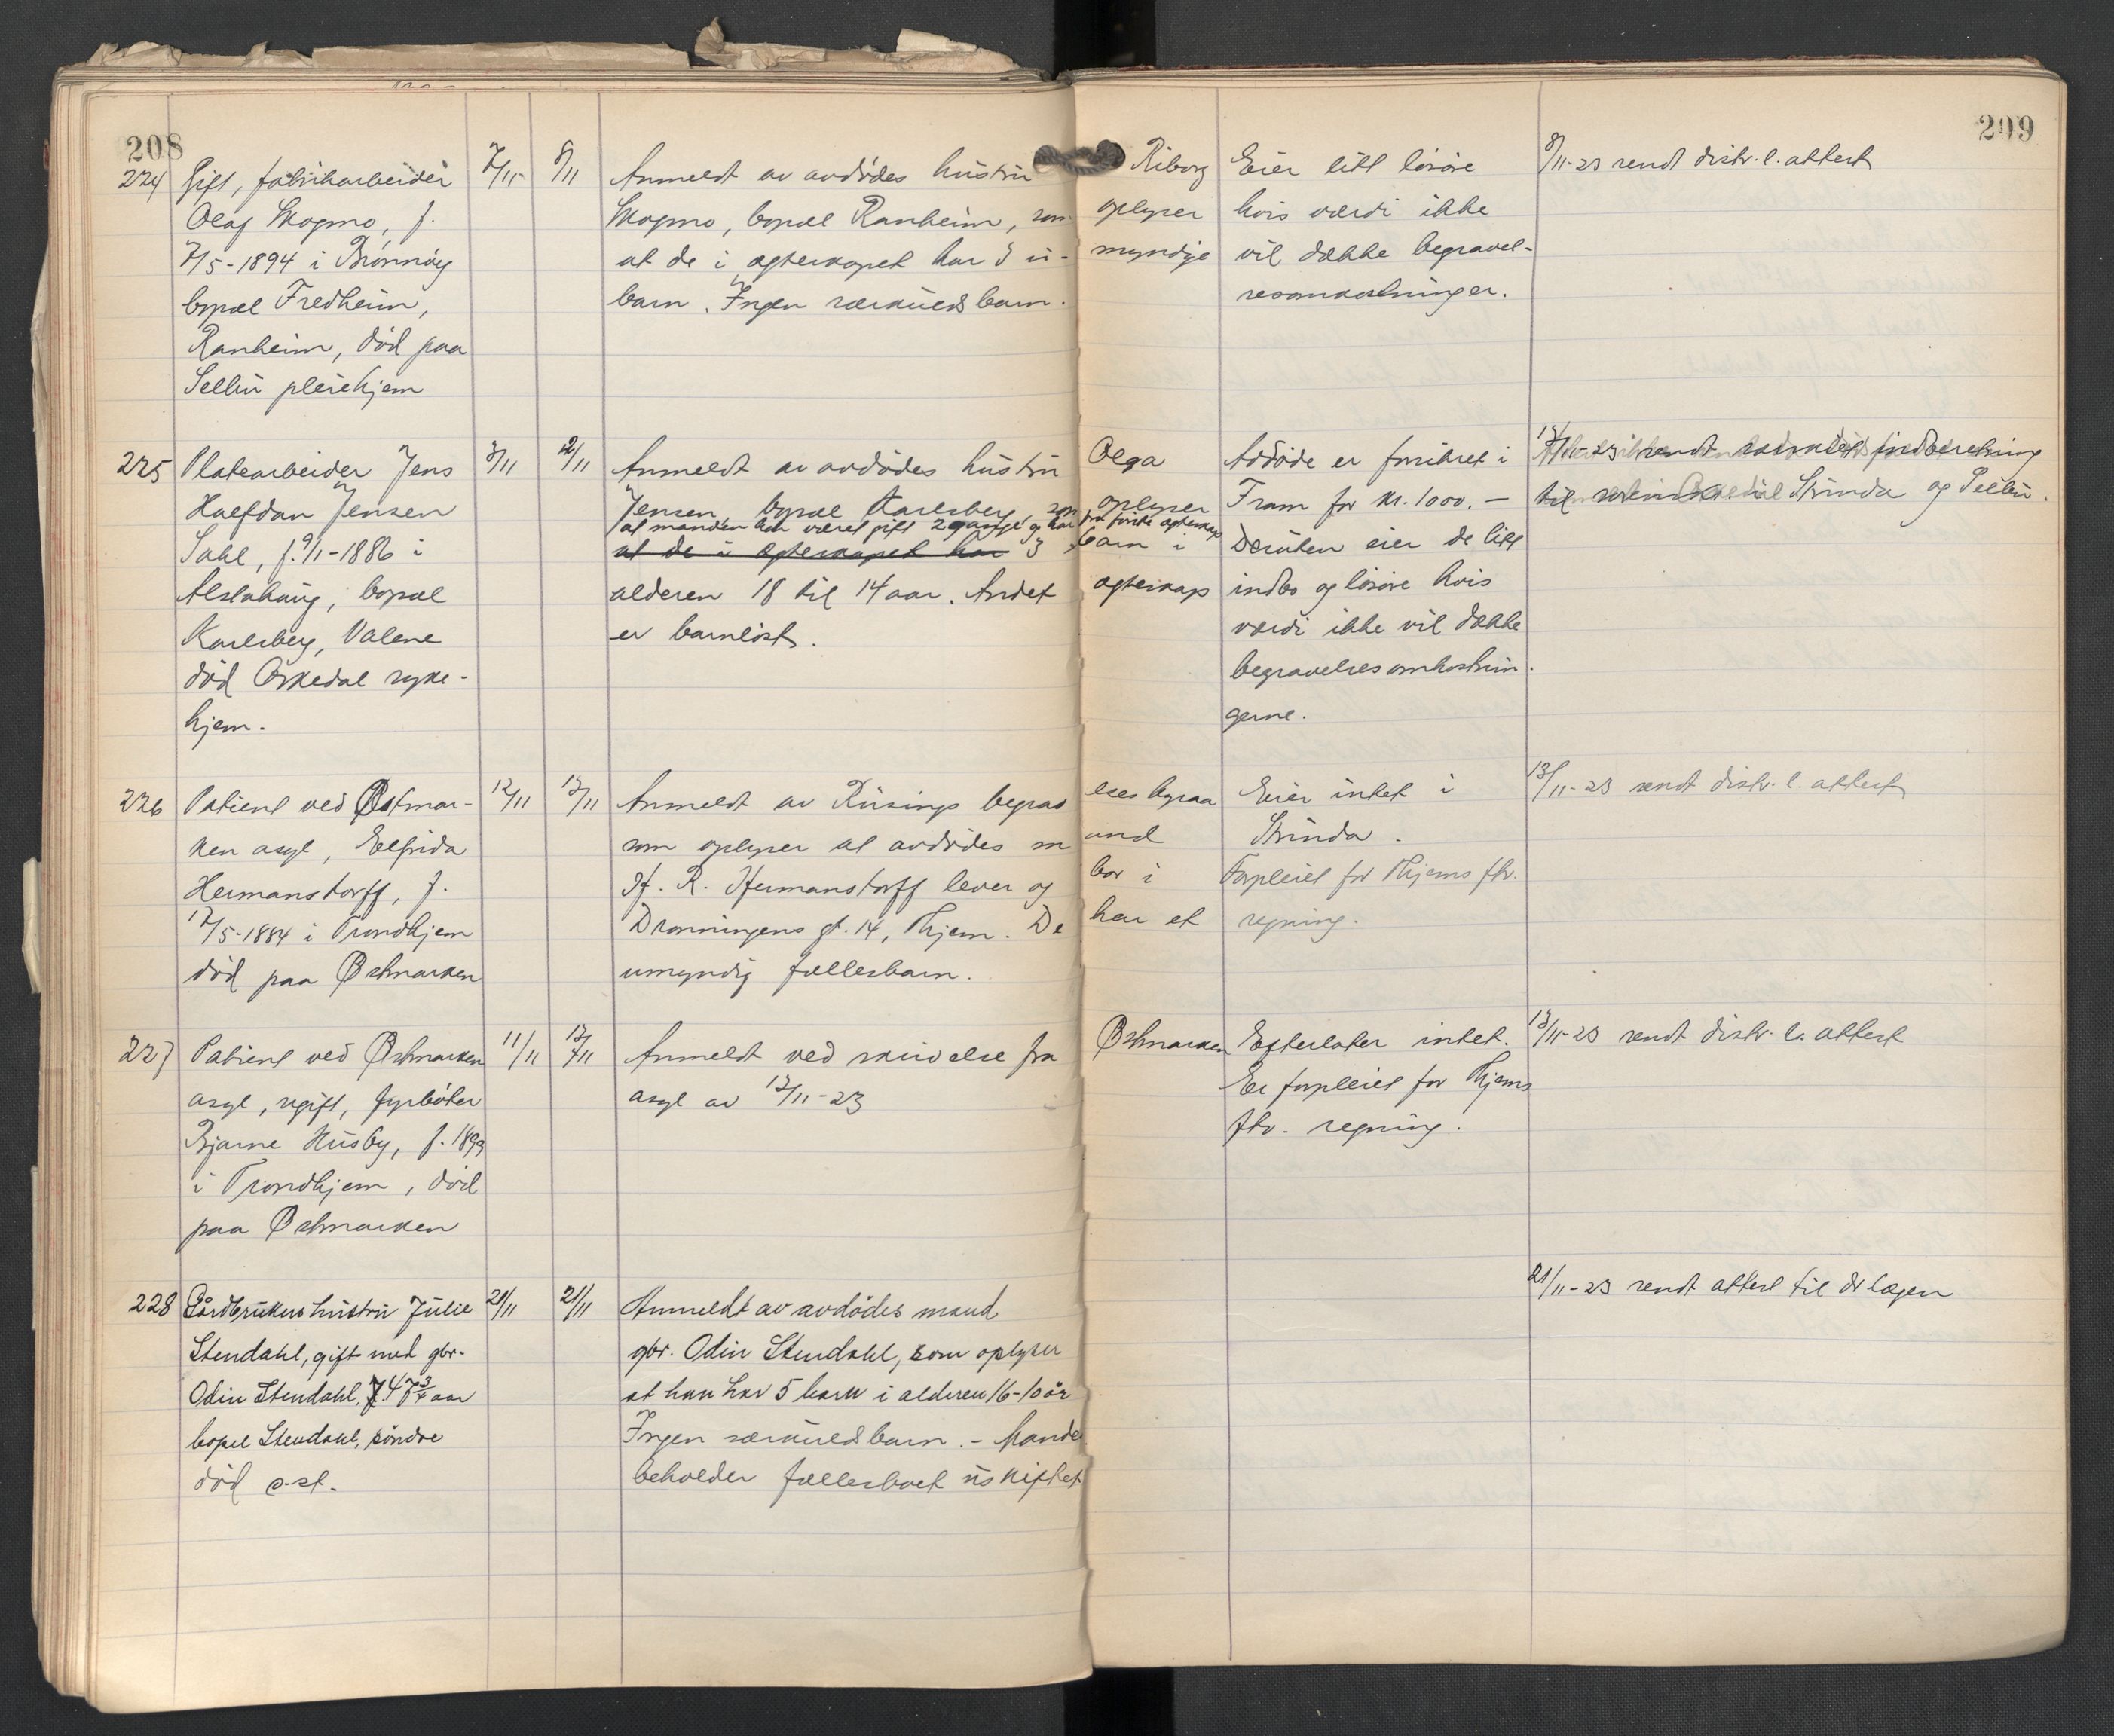 208
209
224 Gift, fabrikarbeider 7/11 8/11 Anmeldt av avdødes hustru Riborg Eier litt løsøre 8/11-23 sendt distr. l. attest
Olaf Skogmo, f. Skogmo, bopæl Ranheim, som oplyser hvis værdi ikke
7/5-1894 i Brønnøy at de i egteskapet har 3 u- myndige vil dække begravel-
bopæl Fredheim, barn. Ingen særkuldsbarn. sesomkostninger.
Ranheim, død paa
Selbu pleiehjem
225 Platearbeider Jens 8/11 12/11 Anmeldt av avdødes hustru Olga Avdøde er forsikret i 12/11-23 sendt indberetning
Halfdan Jensen Jensen, bopæl Karlsberg, som oplyser Fram for kr. 1000.- til Strinda og Selbu.
at manden har været gift 2 gange og har fra første egteskap
Sahl, f. 9/1-1886 i at de i egteskapet har 3 barn i Desuten eier de litt
Alstahaug, bopæl alderen 18 til 14 aar. Andet egteskap indbo og løsøre hvis
Karlsberg, Valene er barnløst. værdi ikke vil dække
død Orkedal syke- begravelsesomkostnin-
hjem. gerne.
226 Patient ved Østmar- 12/11 13/11 Anmeldt av Rusings begrav elsesbyraa Eier intet i 13/11-23 sendt distr. l. attest
ken asyl, Elfrida som oplyser at avdødes m and Strinda.
Hermanstorff, f. H. R. Hermanstorff lever og bor i Forpleiet for Thjems fkr.
17/5-1884 i Trondhjem Dronningens gt. 14, Thjem. De har et regning.
død paa Østmarken umyndig fællesbarn.
227 Patient ved Østmarken 11/11 13/11 Anmeldt ved skrivelse fra Østmarken Efterlater intet. 13/11-23 sendt distr. l. attest
asyl, ugift, fyrbøter asyl av 12/11-23 Er forpleiet for Thjems
Bjarne Husby, f. 1899 fkv. regning.
i Trondhjem, død
paa Østmarken
228 Gårdbrukers hustru Julie 21/11 21/11 Anmeldt av avdødes mand 21/11-23 sendt attest til dr lægen
Stendahl, gift med gbr. gbr. Odin Stendahl, som oplyser
Odin Stendahl, 47 3/4 aar at han har 5 barn i alderen 16-10 år
bopel Stendahl, søndre Ingen særkuldsbarn. - Manden
død s.st. beholder fællesboet uskiftet